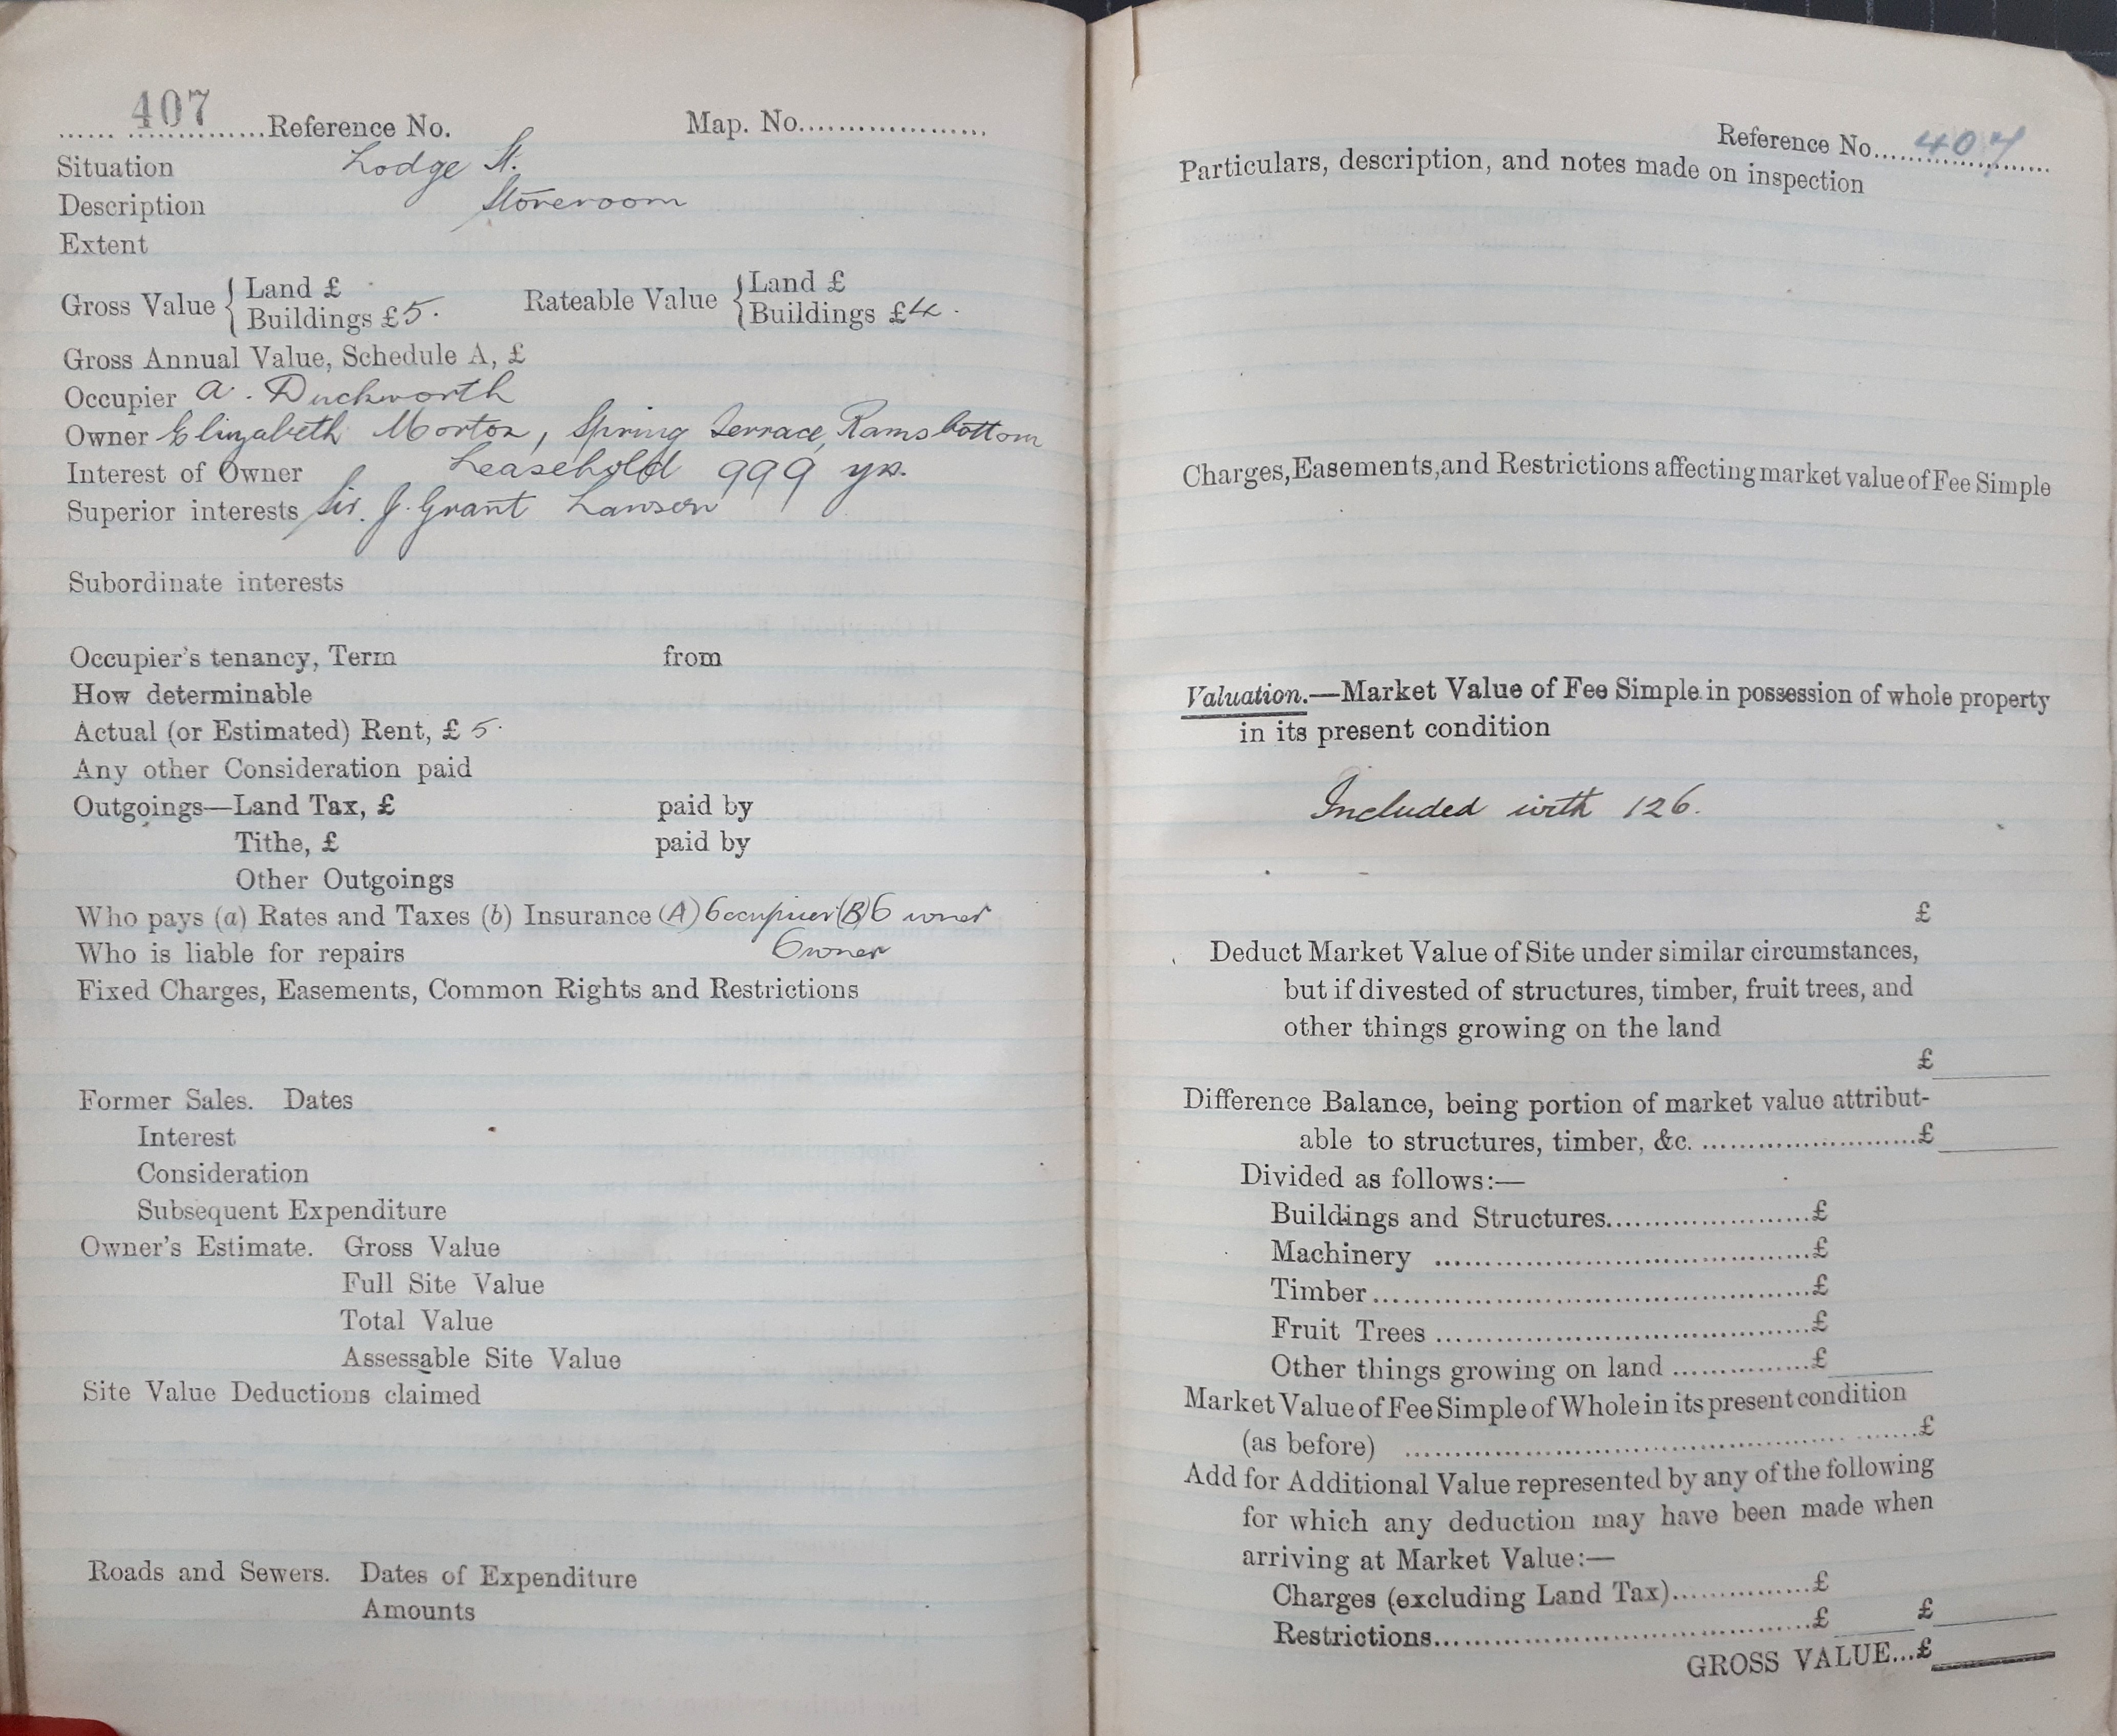 407
...... ..............Reference No. Map. No......................
Situation Lodge St.
Description Storeroom
Extent
Gross Value { Land £
Buildings £5. Rateable Value { Land £
Buildings £4.
Gross Annual Value, Schedule A, £
Occupier A. Duckworth
Owner Elizabeth Morton, Spring Terrace, Ramsbottom
Interest of Owner Leasehold 999 yrs.
Superior interests Sir. J. Grant Lawson
Subordinate interests
Occupier's tenancy, Term from
How determinable
Actual (or Estimated) Rent, £ 5.
Any other Consideration paid
Outgoings—Land Tax, £ paid by
Tithe, £ paid by
Other Outgoings
Who pays (a) Rates and Taxes (b) Insurance (A) Occupier (B) Owner
Who is liable for repairs Owner
Fixed Charges, Easements, Common Rights and Restrictions
Former Sales. Dates
Interest
Consideration
Subsequent Expenditure
Owner's Estimate. Gross Value
Full Site Value
Total Value
Assessable Site Value
Site Value Deductions claimed
Roads and Sewers. Dates of Expenditure
Amounts
Reference No. 407
Particulars, description, and notes made on inspection
Charges, Easements, and Restrictions affecting market value of Fee Simple
Valuation.—Market Value of Fee Simple in possession of whole property
in its present condition
Included with 126.
£
Deduct Market Value of Site under similar circumstances,
but if divested of structures, timber, fruit trees, and
other things growing on the land
£
Difference Balance, being portion of market value attribut-
able to structures, timber, &c. ..........................£
Divided as follows:—
Buildings and Structures........................£
Machinery ............................................£
Timber....................................................£
Fruit Trees ............................................£
Other things growing on land ................£
Market Value of Fee Simple of Whole in its present condition
(as before) ............................................................£
Add for Additional Value represented by any of the following
for which any deduction may have been made when
arriving at Market Value:—
Charges (excluding Land Tax)................£
Restrictions............................................£ £
GROSS VALUE...£